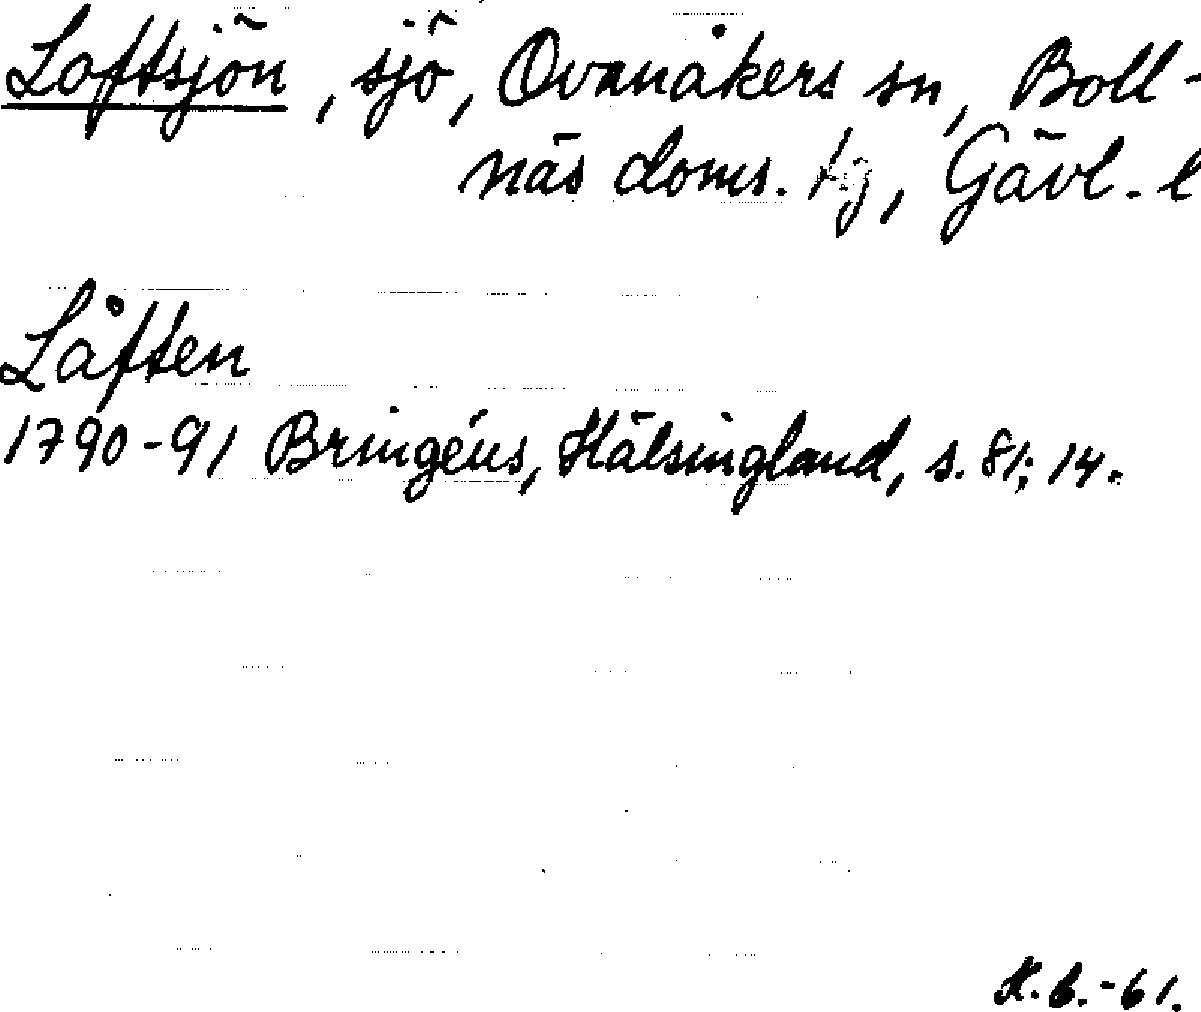 Loftsjön, sjö, Ovanåkers sn, Boll-
näs doms. hj, Gävl. l
Låften
1790-91 Bringéus, Hälsingland, s. 81; 14.
H.B.-61.